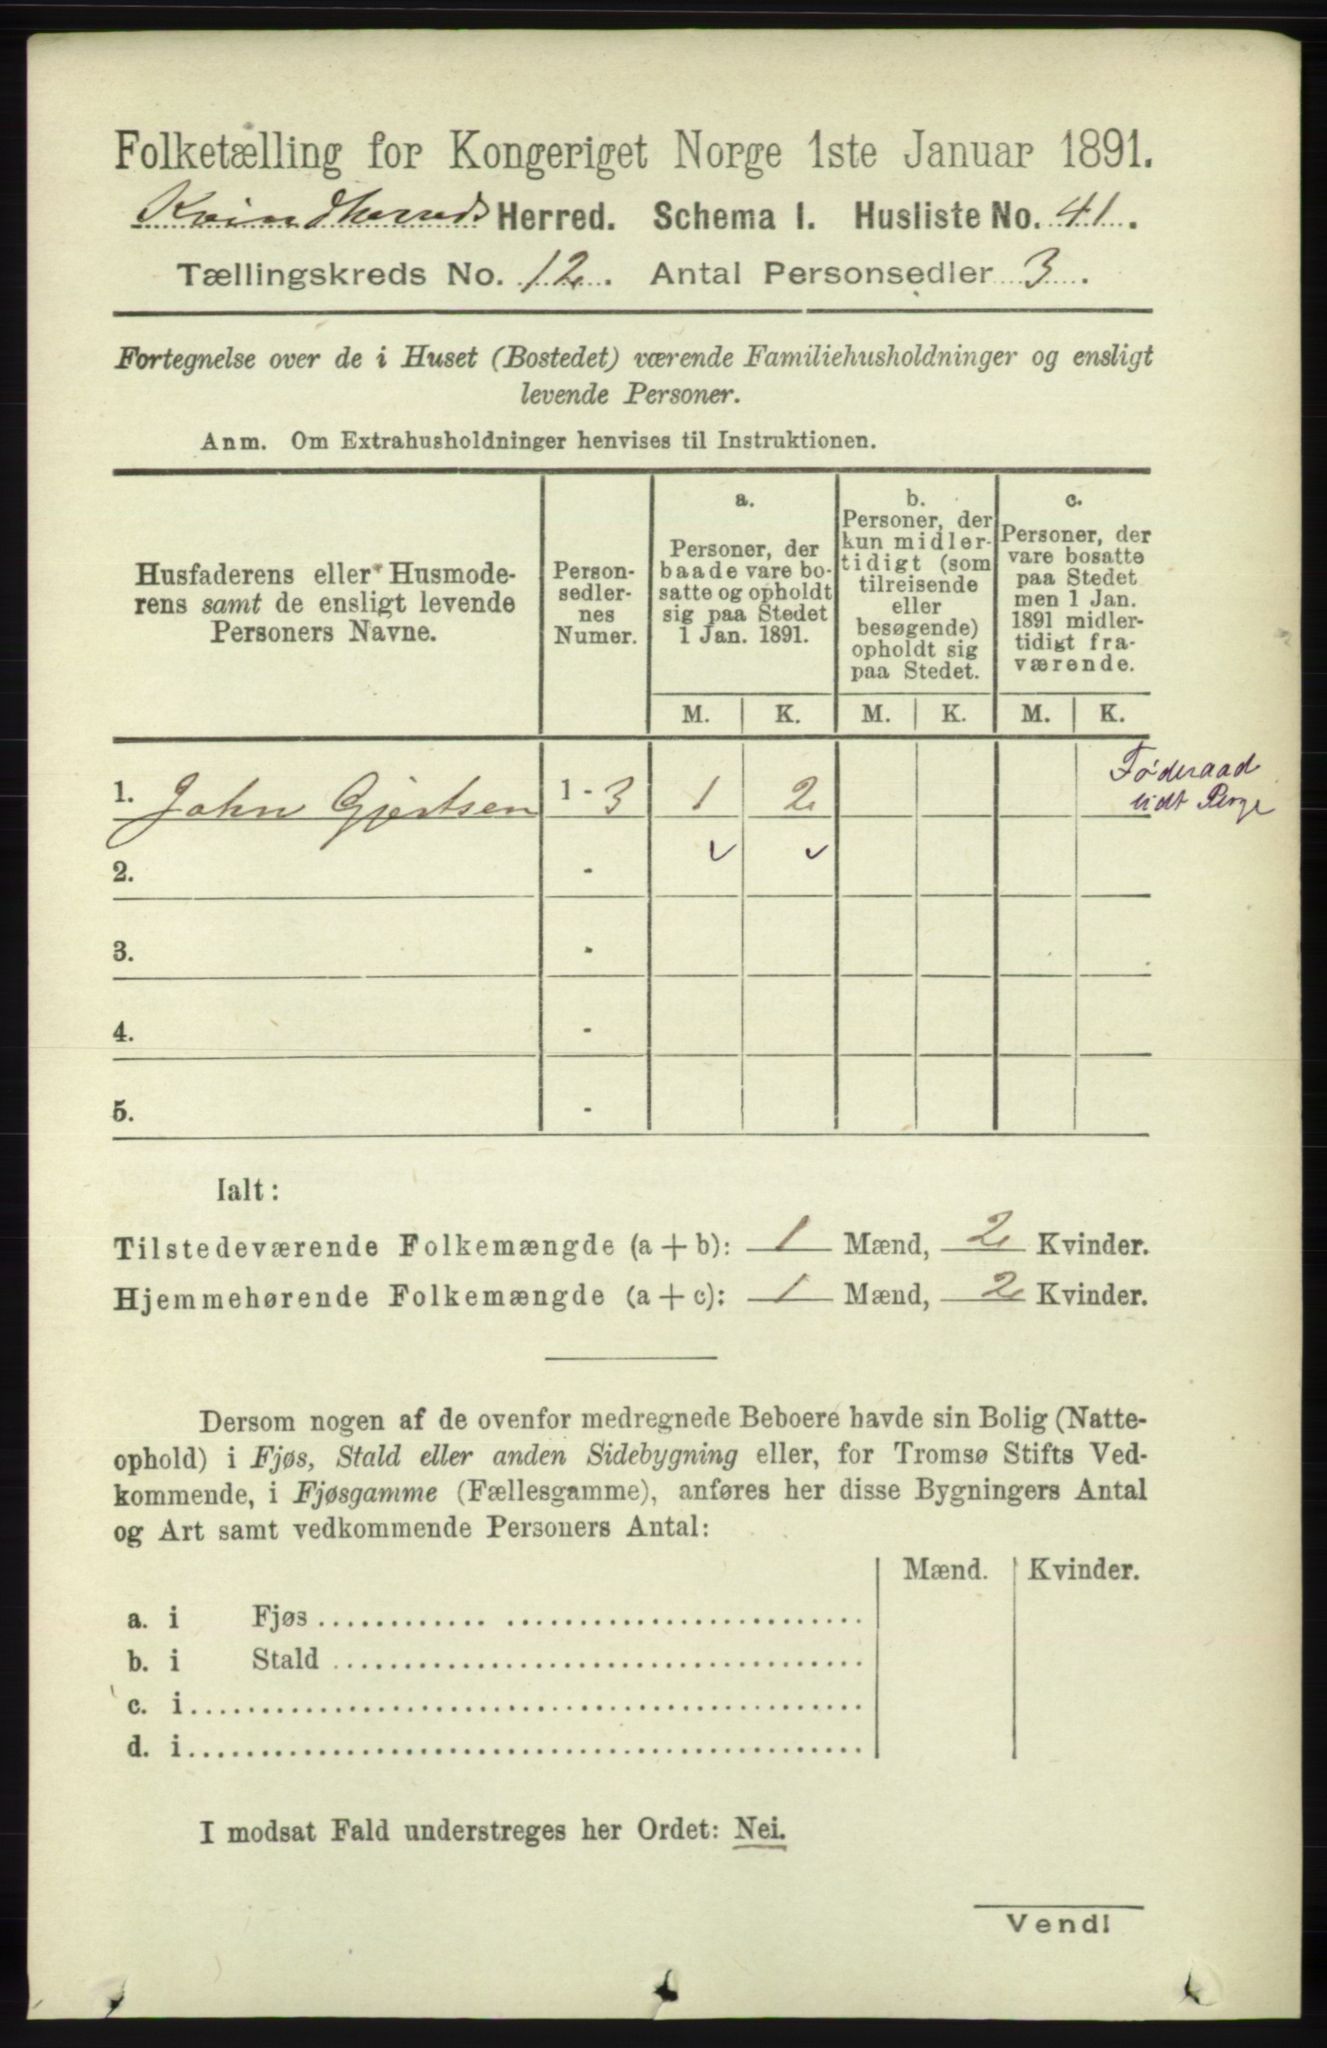 Folketælling for Kongeriget Norge 1ste Januar 1891.
Kvindherreds Herred. Schema I. Husliste No. 41.
Tællingskreds No. 12. Antal Personsedler 3.
Fortegnelse over de i Huset (Bostedet) værende Familiehusholdninger og ensligt
levende Personer.
Anm. Om Extrahusholdninger henvises til Instruktionen.
Husfaderens eller Husmode-
rens samt de ensligt levende
Personers Navne.
Person-
sedler-
nes
Numer.
a.
Personer, der
baade vare bo-
satte og opholdt
sig paa Stedet
1 Jan. 1891.
b.
Personer, der
kun midler-
tidigt (som
tilreisende
eller
besøgende)
opholdt sig
paa Stedet.
c.
Personer, der
vare bosatte
paa Stedet
men 1 Jan.
1891 midler-
tidigt fra-
værende.
M. K. M. K. M. K.
1. John Gjertsen 1 - 3 1 2
Føderaad
lidt
2. - ✓ ✓
3. -
4. -
5. -
Ialt:
Tilstedeværende Folkemængde (a + b): 1 Mænd, 2 Kvinder.
Hjemmehørende Folkemængde (a + c): 1 Mænd, 2 Kvinder.
Dersom nogen af de ovenfor medregnede Beboere havde sin Bolig (Natte-
ophold) i Fjøs, Stald eller anden Sidebygning eller, for Tromsø Stifts Ved-
kommende, i Fjøsgamme (Fællesgamme), anføres her disse Bygningers Antal
og Art samt vedkommende Personers Antal:
Mænd. Kvinder.
a. i Fjøs
b. i Stald
c. i
d. i
I modsat Fald understreges her Ordet: Nei.
Vend!